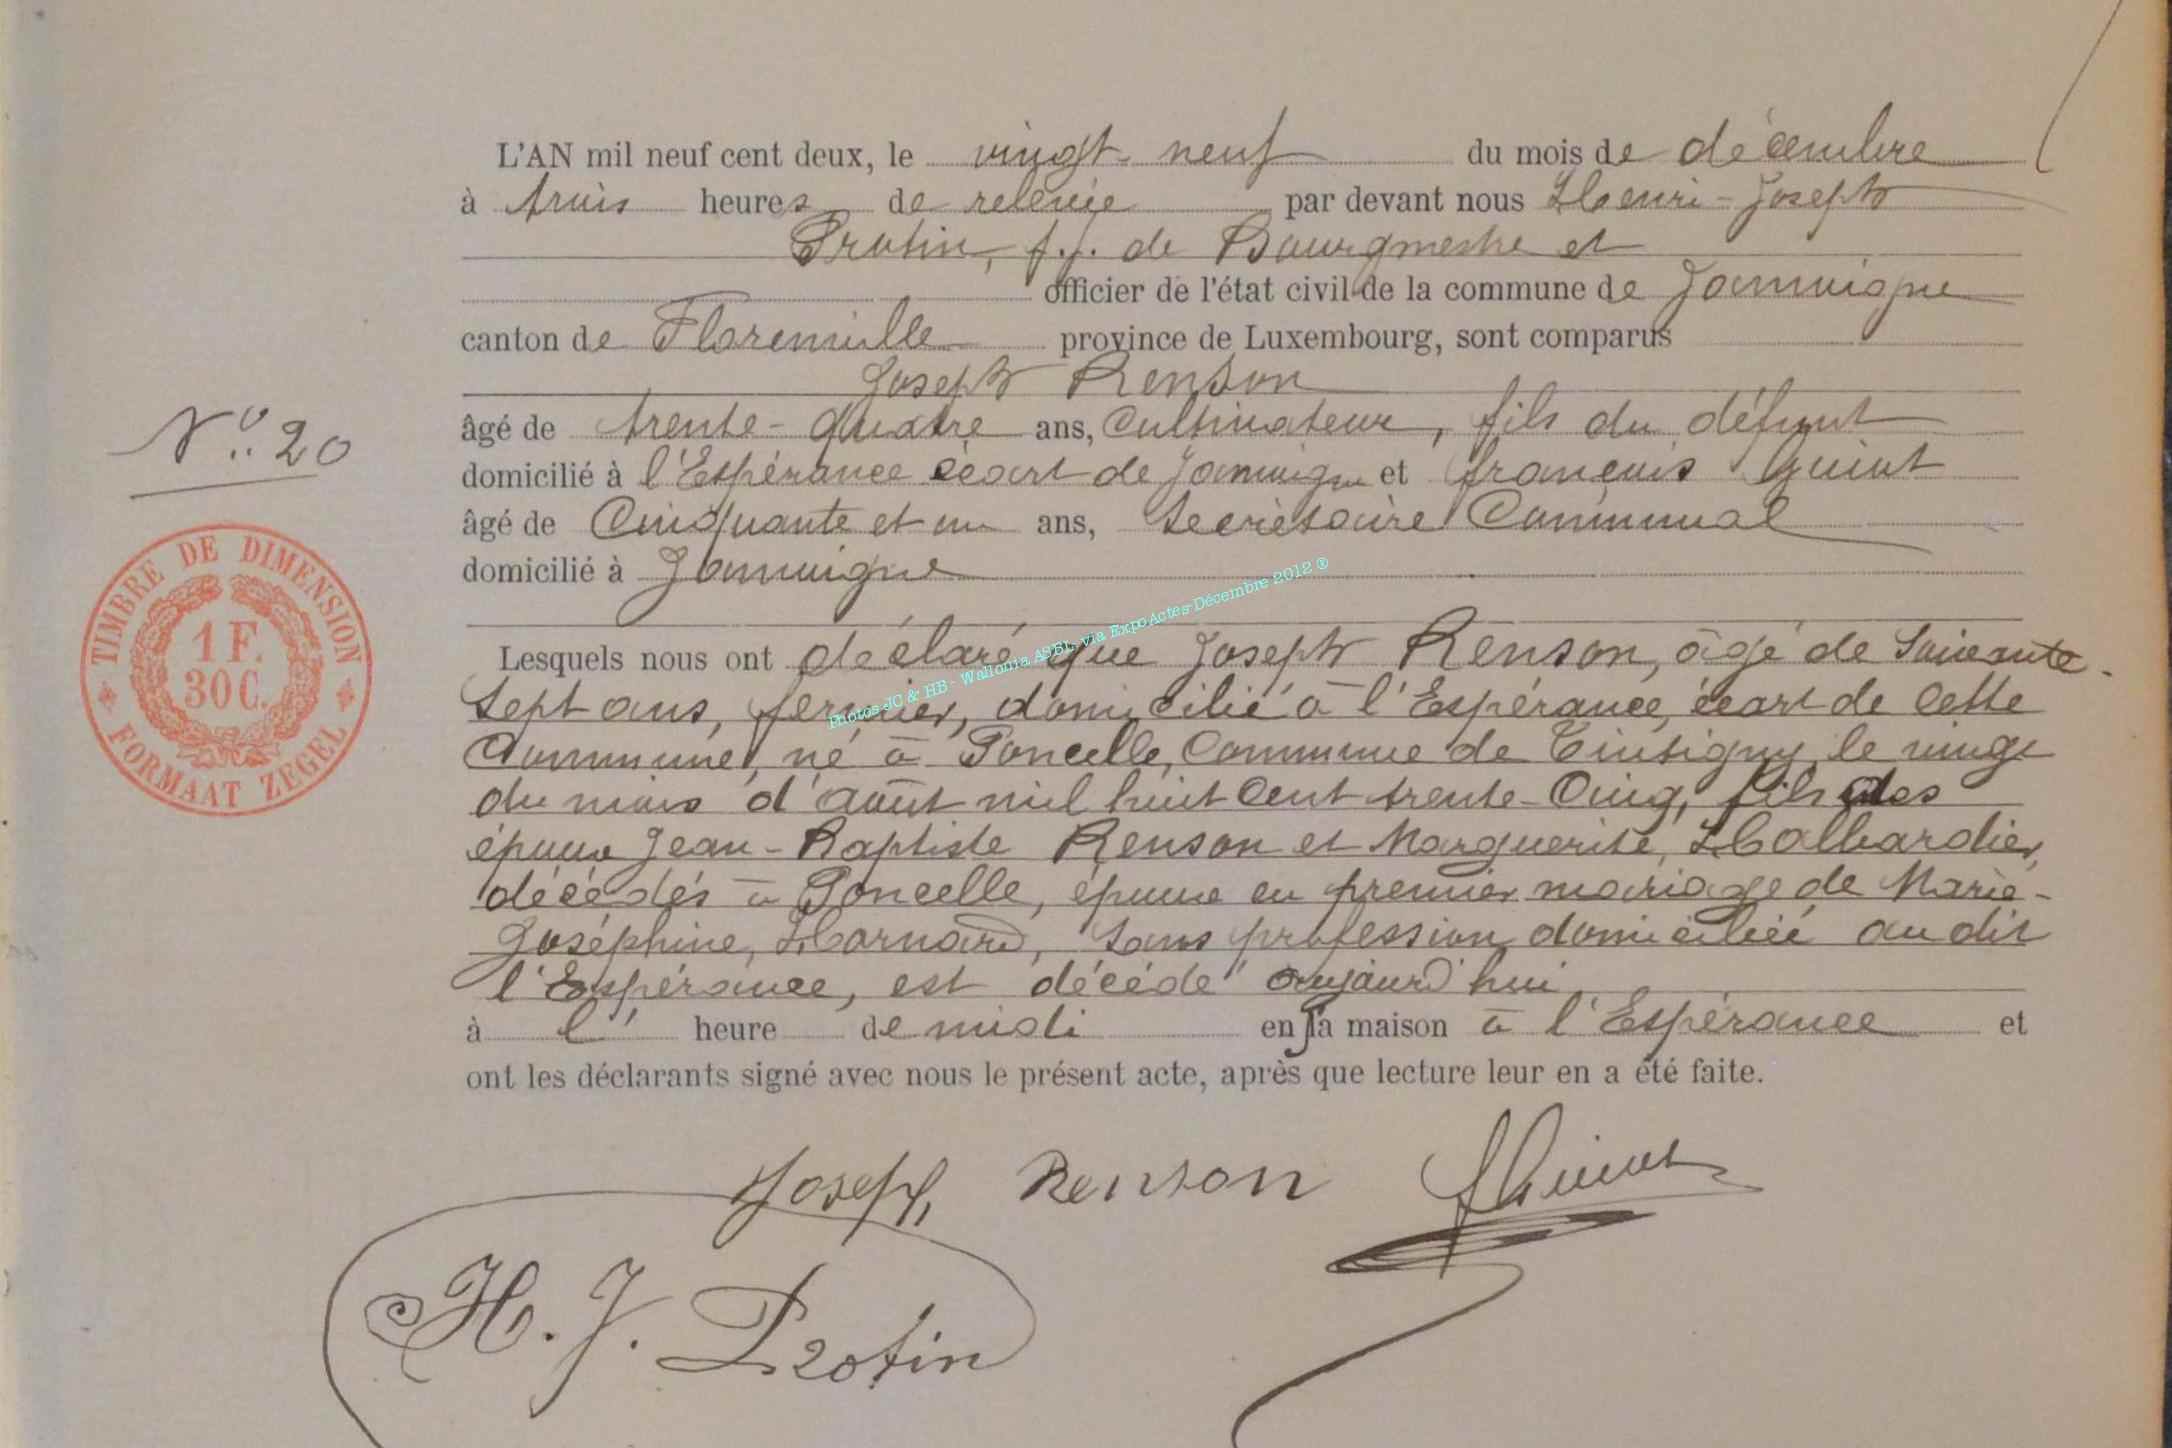 L'AN mil neuf cent deux, le vingt-neuf du mois de décembre
à trois heures de relevée par devant nous Henri-Joseph
Protin, f.f. de Bourgmestre et
officier de l'état civil de la commune de Jamoigne
canton de Florenville province de Luxembourg, sont comparus
Joseph Renson
âgé de trente-quatre ans, Cultivateur, fils du défunt
domicilié à l'Espérance écart de Jamoigne et François Guiot
N° 20
âgé de Cinquante et un ans, Secrétaire Communal
domicilié à Jamoigne
TIMBRE DE DIMENSION
1 F.
30 C.
FORMAAT ZEGEL
Photos JC & HB - Wallonia ASBL via ExpoActes-Décembre 2012 ®
Lesquels nous ont déclaré que Joseph Renson, âgé de Soixante-
Sept ans, fermier, domicilié à l'Espérance, écart de Cette
Commune, né à Poncelle, Commune de Tintigny, le vingt
du mois d'août mil huit Cent trente-Cinq, fils des
époux Jean-Baptiste Renson et Marguerite, Halbardier,
décédés à Poncelle, époux en premier mariage de Marie-
Joséphine, Harnard, Sans profession domiciliée au dit
l'Espérance, est décédé aujourd'hui
à l' heure de midi en sa maison à l'Espérance et
ont les déclarants signé avec nous le présent acte, après que lecture leur en a été faite.
Joseph Renson FGuiot
H. J. Protin